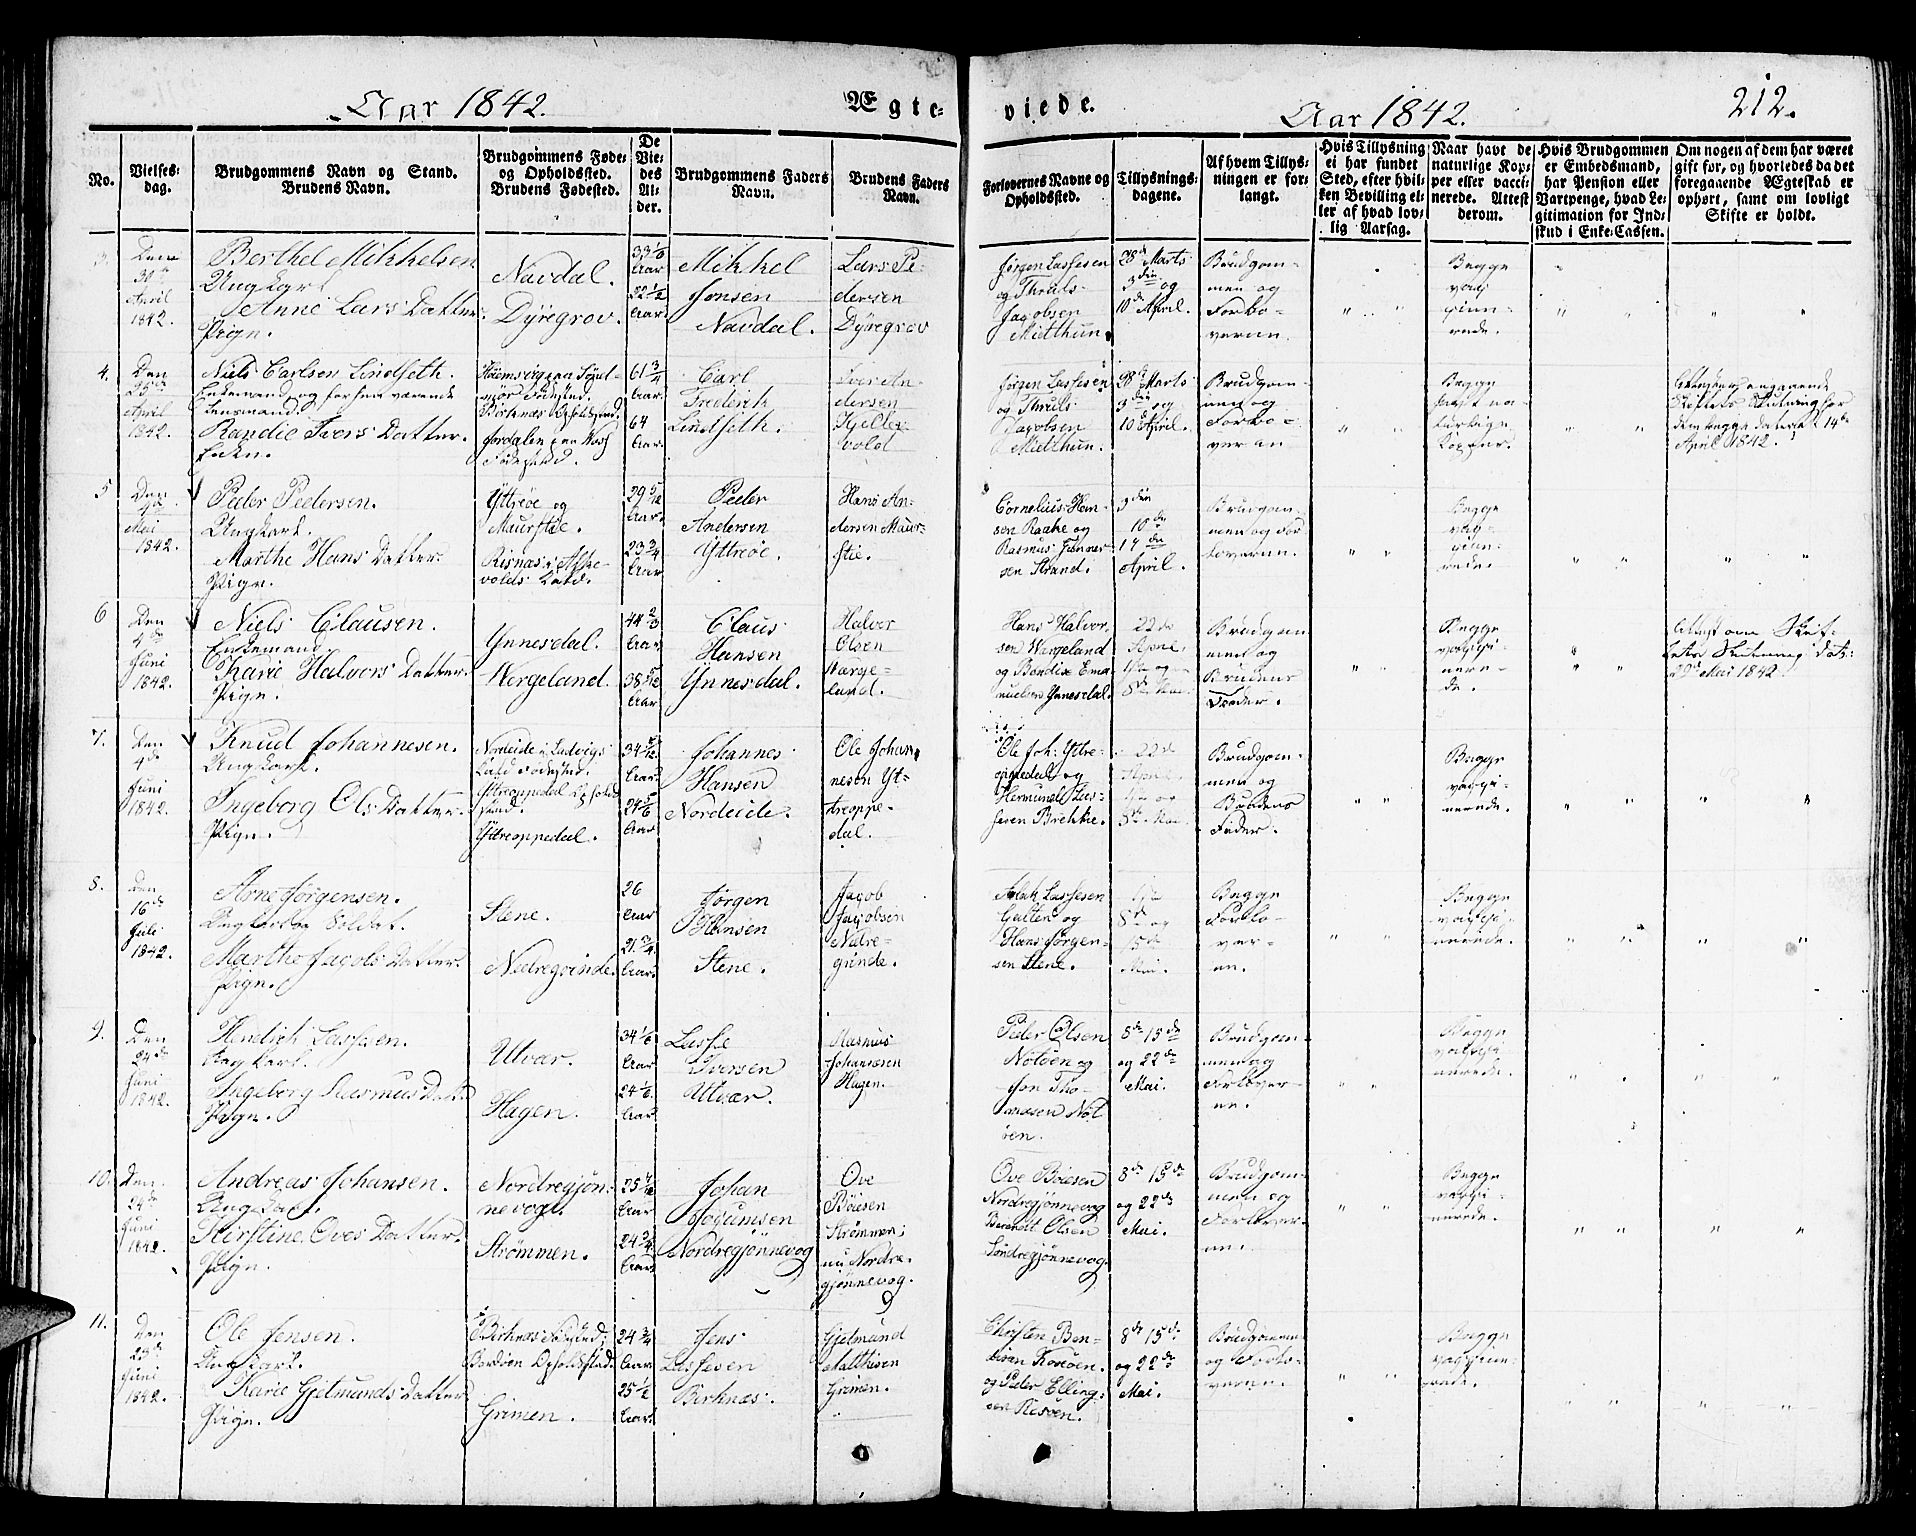 Aar 1842.
Ægte-
viede.
Aar 1842.
212.
No.
Vielses-
dag.
Brudgommens Navn og Stand.
Brudens Navn.
Brudgommens Føde-
og Opholdssted.
Brudens Fødested.
De
Vie-
des
Al-
der.
Brudgommens Faders
Navn.
Brudens Faders
Navn.
Forlovernes Navne og
Opholdssted.
Tillysnings-
dagene.
Af hvem Tillys-
ningen er for-
langt.
Hvis Tillysning
ei har fundet
Sted, efter hvil-
ken Bevilling el-
ler af hvad lov-
lig Aarsag.
Naar havt de
naturlige Kop-
per eller vacci-
nerede. Attest
derom.
Hvis Brudgommen
er Embedsmand,
har Pension eller
Vartpenge, hvad Le-
gitimation for Ind-
skud i Enke-Cassen.
Om nogen af dem har været
gift før, og hvorledes da det
foregaaende Ægteskab er
ophørt, samt om lovligt
Skifte er holdt.
3.
Den
30te
April
1842.
Berthel Mikkelsen
Ungkarl
Anne Lars Datter.
Pige.
Navdal.
Dyregrov.
33 1/6
Aar
22 1/2
Aar.
Mikkel
Jonsen
Navdal.
Lars Pe-
dersen
Dyregrov
Jørgen Lassesen
og Thruls
Jacobsen
Mietthun.
28de Marts
3die og
10de April.
Brudgom-
men og
Forlo-
verne.
Begge
vac-
cine-
rede.
4.
Den
25de
April
1842.
Niels Carlsen Lindseth.
Enkemand og forhen værende
Lensmand.
Randie Ivers Datter.
Enke.
Søndmør Fødested.
Birknæs Opholdssted.
Jordalen paa Voss
Fødested.
61 3/4
Aar.
64
Aar.
Carl
Frederik
Lindseth.
Iver An-
dersen
Hjelle-
vold
Jørgen Lassesen
og Thruls
Jacobsen
Mietthun.
28de Marts
3die og
10de April.
Brudgom-
men og
Forlo-
verne
Begge
havt na-
turlige
Kopper.
Attester angaaende
Skiftets Slutning for
dem begge daterede 14de
April 1842.
5
Den
Mai
1842.
Peder Pedersen.
Ungkarl.
Marthe Hans Datter.
Pige.
Yttrøe og
Maurstie.
Risnæs i Aske-
volds Sogn.
29 5/12
Aar.
23 3/4
Aar.
Peder
Andersen
Yttrøe.
Hans An-
dersen Maur-
stie.
Cornelius Hen-
sen Raake og
Rasmus Fannes-
sen Strand.
3die
10de
17de
April.
Brudgom-
men og For-
loverne.
Begge
vac-
cine-
rede.
6
Den
4de
Juni
1842.
Niels Clausen.
Enkemand
Karie Halvors Datter.
Pige.
Ynnesdal.
Wergeland.
44 2/3
Aar.
38 5/12
Aar
Claus
Hansen
Ynnesdal.
Halvor
Olsen
Værge-
land.
Hans Halvor-
sen Wergeland
og Bendix Ema-
nuelsen Ynnesdal.
22de
April.
1ste og
8de Mai.
Brudgom-
men og
Brudens
Fader.
Begge
vacci-
nere-
de.
Attest om Skif-
tets Slutning dat:
29de Mai 1842
7.
Den
4de
Juni
1842.
Knud Johannesen.
Ungkarl.
Ingeborg Ols Datter.
Pige.
Nordeide i Ladvigs
Sogn Fødested.
Yttreoppedal Ophold-
sted.
Yttreoppedal.
34 5/12
Aar.
24 5/6
Aar.
Johannes
Hansen
Nordeide.
Ole Johan-
nesen Yt-
treoppe-
dal.
Ole Joh: Yttre-
oppedal og
Hermund Las-
sesen Brekke.
22de
April.
1ste og
8de Mai.
Brudgom-
men og
Brudens
Fader.
Begge
vacci-
nerede.
8.
Den
16de
Juli
1842.
Arne Jørgensen.
Ungkarl og Soldat.
Marthe Jacobs Datter.
Pige.
Stene.
Nedregrinde.
26
Aar
21 3/4
Aar.
Jørgen
Hansen
Stene.
Jacob
Jacobsen
Nedre-
grinde.
Lassesen
Galten og
Hans Jørgen-
sen Stene.
1ste
8de og
15de
Mai.
Begge
Forlo-
ver-
ne.
Begge
vacci-
nerede.
9.
Den
24de
Juni
1842.
Hendrich Lassesen.
Ungkarl.
Ingeborg Rasmus Dat.
Pige.
Utvær.
Hagen.
34 1/6
Aar
24 1/6
Aar.
Lasse
Iversen
Utvær.
Rasmus
Johannesen
Hagen.
Peder Olsen
Notøen og
Jon Tho-
massen Not-
øen.
8de 15de
og 22de
Mai.
Brudgom-
men og
Forlover-
ne.
Begge
vacci-
nerede.
10.
Den
24de
Juni
1842.
Andreas Johansen.
Ungkarl.
Kirstine Oves Datter.
Pige.
Nordregjøn-
nevog.
Strømmen.
25 4/12
Aar
24 3/4
Aar.
Johan
Joçumsen
Nordregjønnevog
Ove
Böiesen
Strømmen;
nu Nordre-
gjønnevog.
Ove Boiesen
Nordregjønnevog
Berendt Olsen
Søndregjønnevog.
8de 15de
og 22de
Mai.
Brudgom-
men og
Forlover-
ne.
Begge
vacci-
nerede.
11.
Den
23de
Juni
1842.
Ole Jensen.
Ungkarl.
Karie Gjetmunds Datter
Pige.
Birknæs Fødested;
Bordøen Opholdssted.
Grimen.
24 3/4
Aar.
25 1/2
Aar.
Jens
Lassesen
Birknæs.
Gjetmund
Matthisen
Grimen.
Christen Ben-
tsen Kosøen.
og Peder Elling-
sen Risøen.
8de 15de
og 22de
Mai.
Brudgommen
og Forlo-
verne.
Begge
vaccine-
rede.